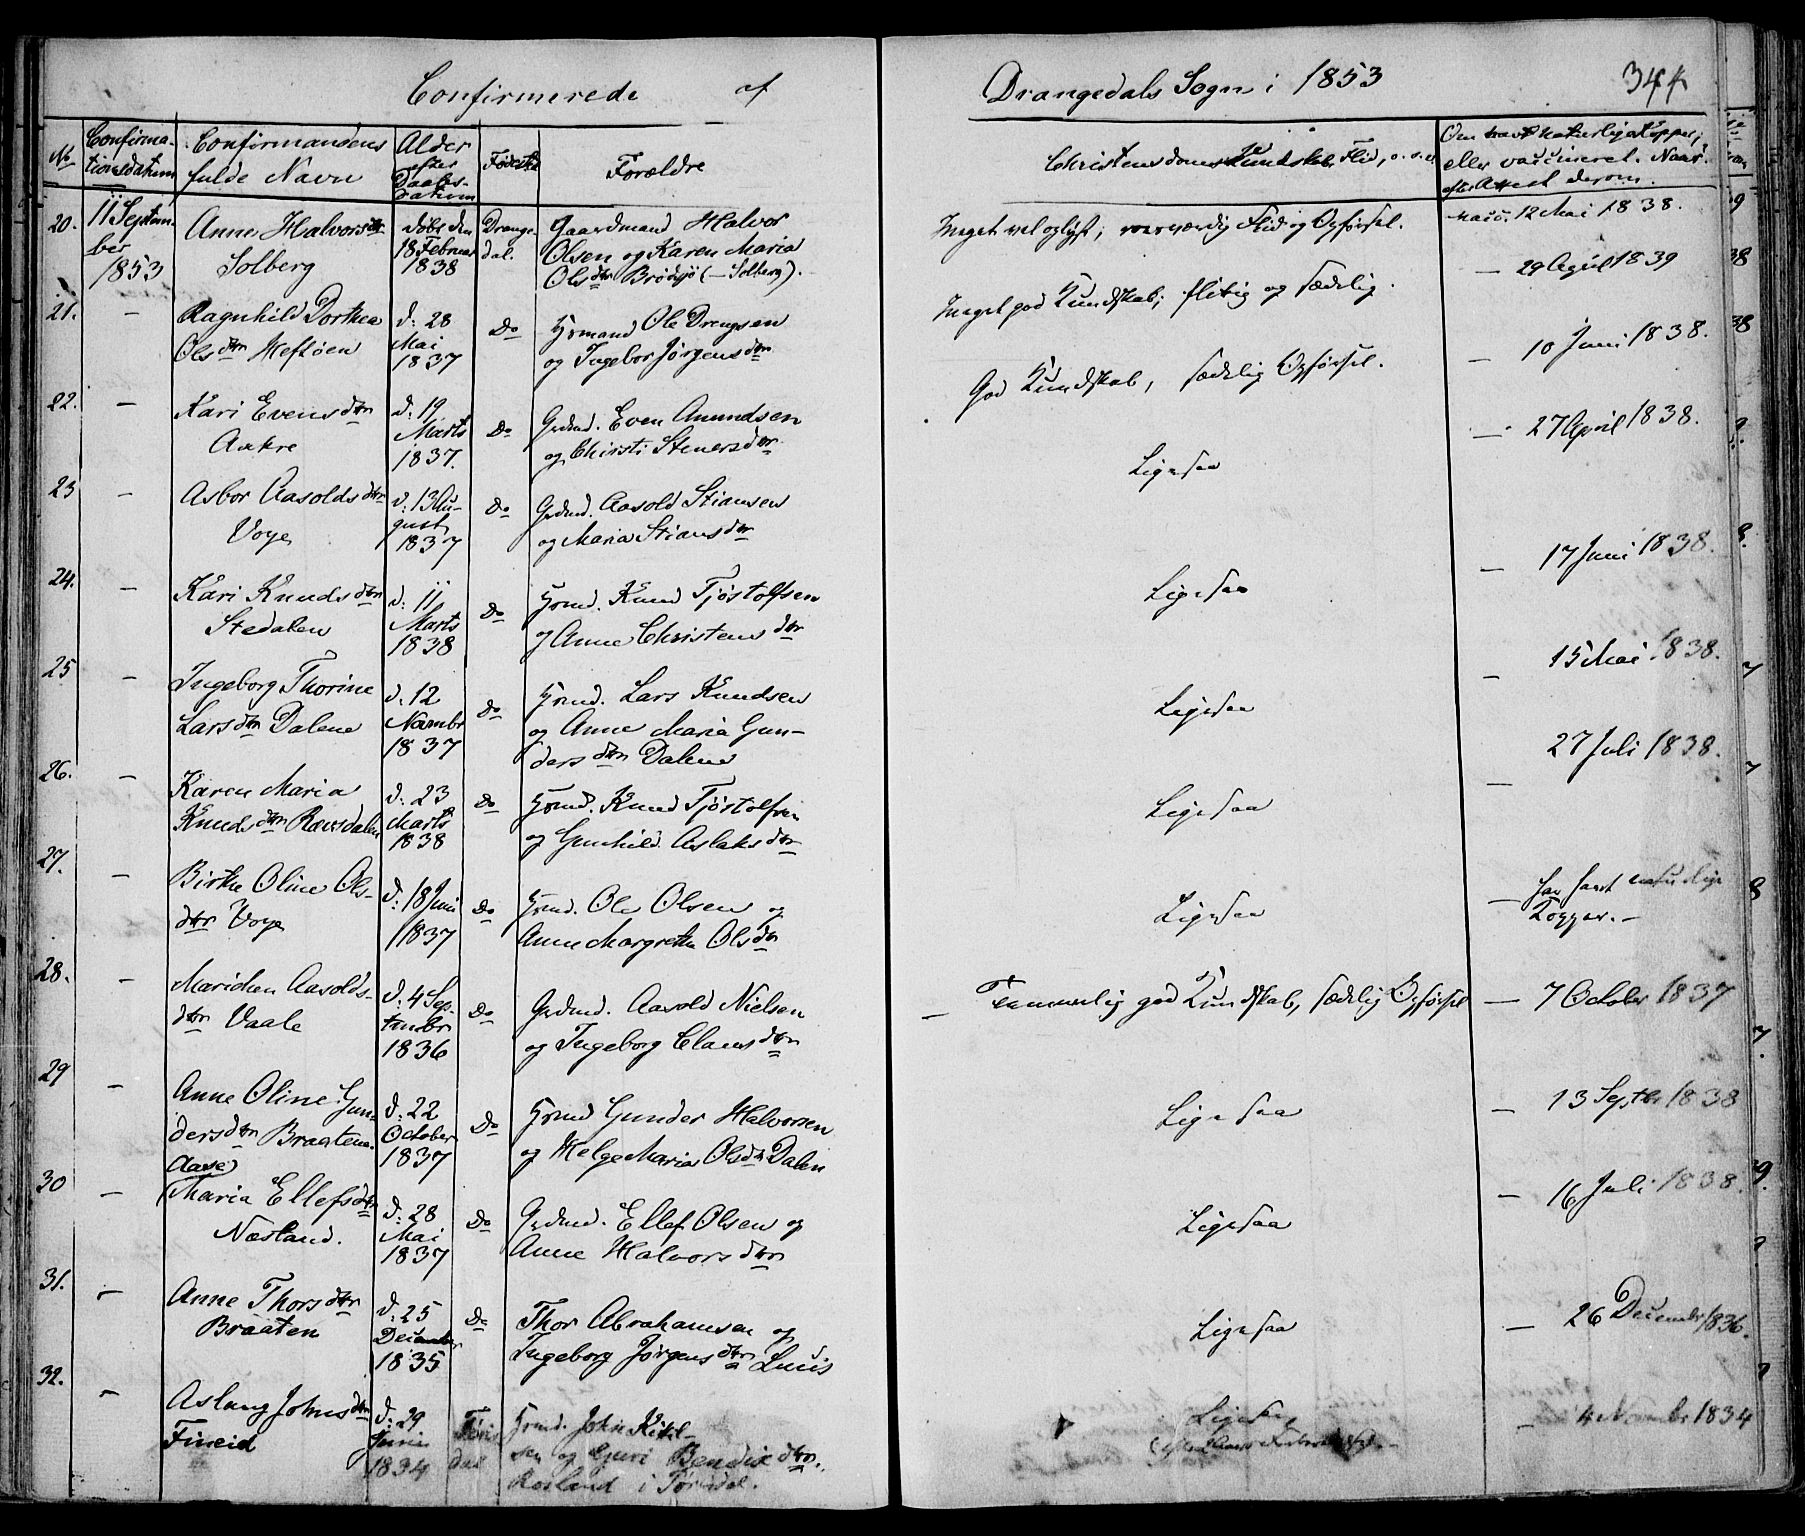 Confirmerede af Drangedals Sogn i 1853 344
No
Confirma-
tionsdatum
Confirmandens
fulde Navn
Alder
efter
Daabs-
datum
Fødested
Forældre
Christendoms Kundskab, Flid, o. s. v.
Om havt naturlige Kopper,
eller vaccineret. Naar.
efter Attest derom.
20.
11 Septem-
ber
1853
Anne Halvorsdtr
Solberg
døbt den
18 Februar
1838
Drange-
dal.
Gaardmand Halvor
Olsen og Karen Maria
Olsdtr Brødsjø (- Solberg).
Meget vel oplyst; Flid og Opførsel.
vacc. 12 Mai 1838.
21.
–
Ragnhild Dorthea
Olsdtr Heftøen
d: 28
Mai
1837
Do
Hsmand Ole Drengsen
og Ingebor Jørgensdtr
Meget god Kundskab; flitig og sædelig.
– 29 April 1839
22.
–
Kari Evensdtr
Aakre
d: 19
Marts
1837.
Do
Grdmd. Even Amundsen
og Chirsti Stenersdtr
God Kundskab, sædelig Opførsel.
– 10 Juni 1838.
23
–
Asbor Aasoldsdtr
Voje
d: 13 Au-
gust
1837
Do
Grdmd. Aasold Stiansen
og Maria Stiansdtr
Ligesaa
– 27 April 1838.
24.
–
Kari Knudsdtr
Stedalen
d: 11
Marts
1838
Do
Hsmd. Knud Tjøstolfsen
og Anne Christensdtr
Ligesaa
– 17 Juni 1838.
25
–
Ingeborg Thorine
Larsdtr Dalene
d: 12
Novmbr
1837
Do
Hsmd. Lars Knudsen
og Anne Maria Gun-
dersdtr Dalene
Ligesaa
– 15 Mai 1838.
26.
–
Karen Maria
Knudsdtr Rævsdalen
d: 23
Marts
1838
Do
Hsmd. Knud Tjøstolfsen
og Gunhild Aslaksdtr
Ligesaa
– 27 Juli 1838.
27.
–
Birthe Oline Ols-
dtr Voje
d: 18 Juni
1837
Do
Hsmd. Ole Olsen og
Anne Margrethe Olsdtr
Ligesaa
– har havt naturlige
Kopper. –
28.
–
Marichen Aasolds-
dtr Vaale
d: 4 Sep-
tembr
1836
Do
Grdmd. Aasold Nielsen
og Ingeborg Clausdtr
– Temmelig god Kundskab, sædelig Opførsel
– 7 October 1837
29
–
Anne Oline Gun-
dersdtr Braatene
Aase)
d: 22
October
1837
Do
Hsmd Gunder Halvorsen
og Helge Maria Olsdtr Dalen
Ligesaa
– 13 Septbr 1838
30
–
Maria Ellefsdtr
Næsland.
d: 28
Mai
1837
Do
Grdmd. Ellef Olsen og
Anne Halvorsdtr
Ligesaa
– 16 Juli 1838.
31.
–
Anne Thorsdtr
Braaten
d: 25
December
1835
Do
Thor Abrahamsen og
Ingeborg Jørgensdtr
Ligesaa
– 26 December 1836.
32.
–
Aslaug Johnsdtr
Fineid
d: 29
Juni
1834
Tøris
dal
Hsmd. John Kitil-
sen og Guri Bendixdtr.
Rosland i Tørisdal.
Ligesaa
– 4 Novmbr 1834